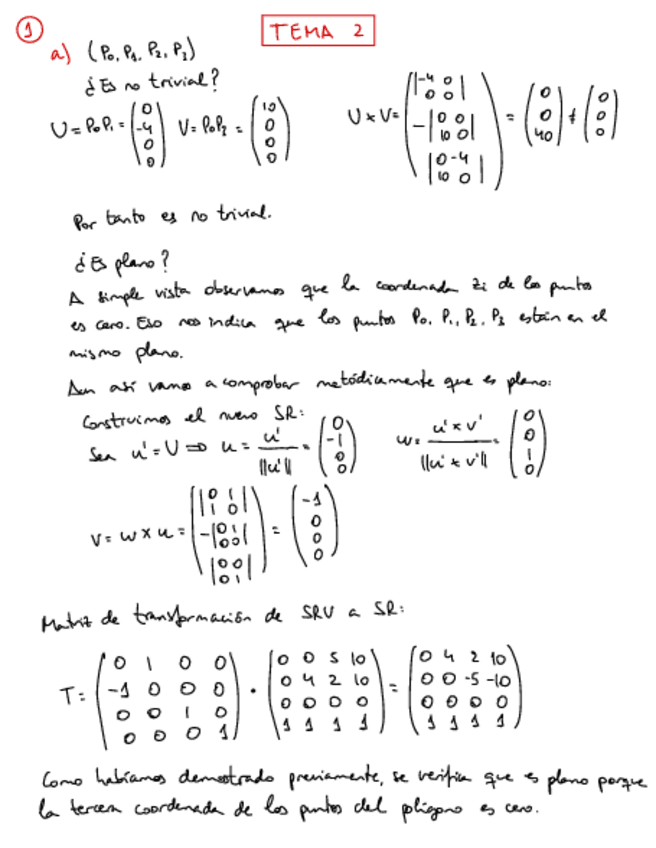 ① TEMA 2
a) (P₀, P₁, P₂, P₃)
¿Es no trivial?
U = P₀P₁ = (0 -4 0 0) V = P₀P₃ = (10 0 0 0) U × V = (|-4 0 0 0| -|0 0 10 0| |0 -4 10 0|) = (0 0 40) ≠ (0 0 0)
Por tanto es no trivial.
¿Es plano?
A simple vista observamos que la coordenada zi de los puntos
es cero. Eso nos indica que los puntos P₀, P₁, P₂, P₃ están en el
mismo plano.
Aun así vamos a comprobar metódicamente que es plano:
Construimos el nuevo SR:
Sea u' = U ⇒ u = u' / ||u'|| = (0 -1 0 0) w = u' × v' / ||u' × v'|| = (0 0 1 0)
V = w × u = (|0 1 1 0| -|0 1 0 0| |0 0 0 1|) = (-1 0 0 0)
Matriz de transformación de SRU a SR:
T = (0 1 0 0 · (0 0 5 10 = (0 4 2 10
-1 0 0 0 0 4 2 10 0 0 -5 -10
0 0 1 0 0 0 0 0 0 0 0 0
0 0 0 1) 1 1 1 1) 1 1 1 1)
Como habíamos demostrado previamente, se verifica que es plano porque
la tercera coordenada de los puntos del polígono es cero.